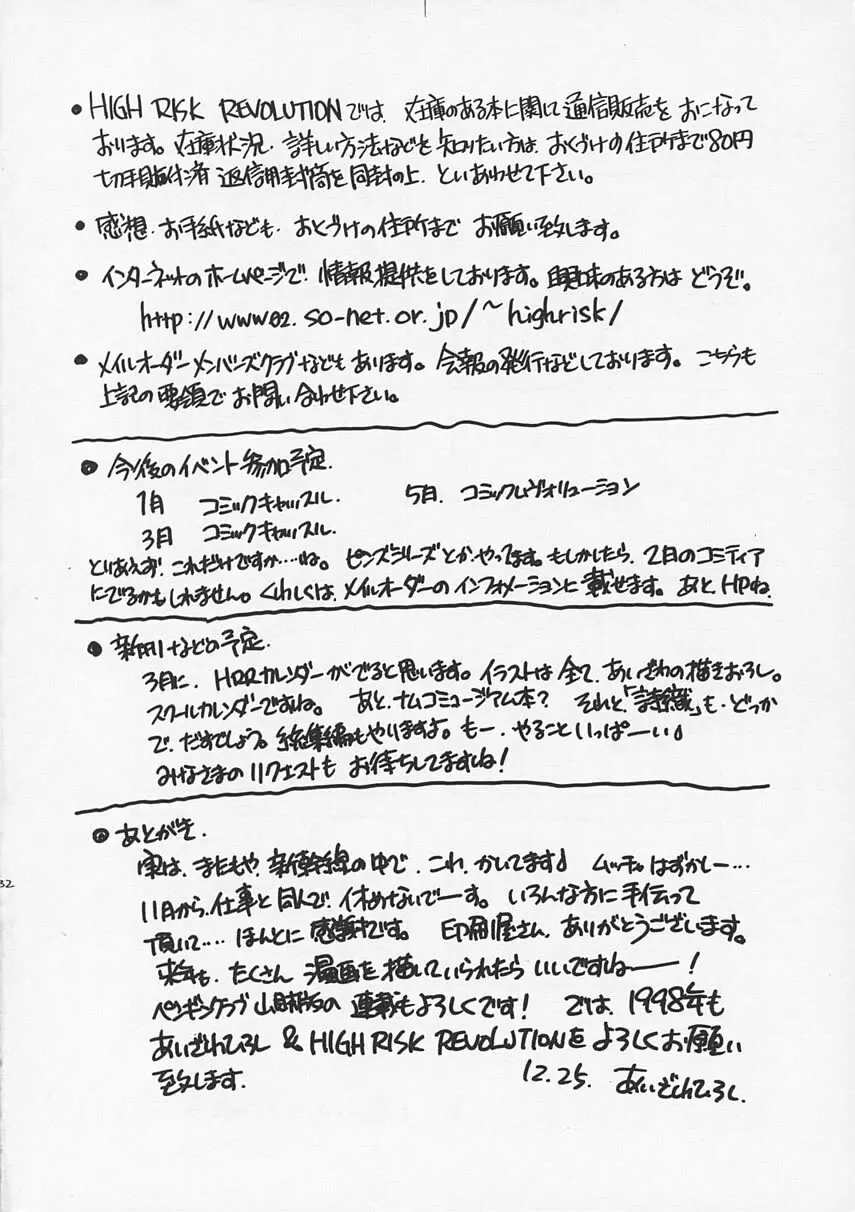 ● HIGH RISK REVOLUTIONでは、在庫のある本に関して通信販売をおこなって
おります。在庫状況、詳しい方法などを知りたい方は、おくづけの住所まで80円
切手貼付済返信用封筒を同封の上、といあわせて下さい。
● 感想、お手紙なども、おくづけの住所までお願い致します。
● インターネットのホームページで、情報提供をしております。興味のある方はどうぞ。
http://www02.so-net.or.jp/~highrisk/
● メイルオーダーメンバーズクラブなどもあります。会報の発行などしております。こちらも
上記の要領でお問い合わせ下さい。
● 今後のイベント参加予定.
1月 コミックキャッスル. 5月. コミックレヴォリューション
3月 コミックキャッスル.
とりあえず、これだけですか…ね。ピンズシリーズとか、やってます。もしかしたら、2月のコミティア
にでるかもしれません。くわしくは、メイルオーダーのインフォメーションに載せます。あと、HPね.
● 新刊などの予定.
3月に、HRRカレンダーがでると思います。イラストは全て、あいざわの描きおろし。
スクールカレンダーですね。あと、ナムコミュージアム本？ それと、「詩織」も、どっか
で、だすでしょう。総集編もやりますよ。もー、やることいっぱーい♪
みなさまのリクエストも お待ちしてますね！
● あとがき.
実は、またもや、新幹線の中で、これ、かいてます♪ ムッチャはずかしー…
11月から、仕事と同人で、休めないでーす。いろんな方に手伝って
頂いて…. ほんとに感謝です。印刷屋さん、ありがとうございます。
来年も、たくさん漫画を描いていられたらいいですねー！
ペンギンクラブ山賊版の連載もよろしくです！ では、1998年も
あいざわひろし & HIGH RISK REVOLUTIONをよろしくお願い
致します.
12.25. あいざわひろし.
32